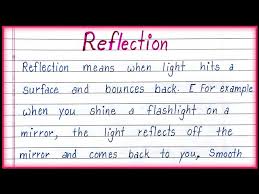 Reflection
Reflection means when light hits a
surface and bounces back. [ For example
when you shine a flashlight on a
mirror, the light reflects off the
mirror and comes back to you, Smooth